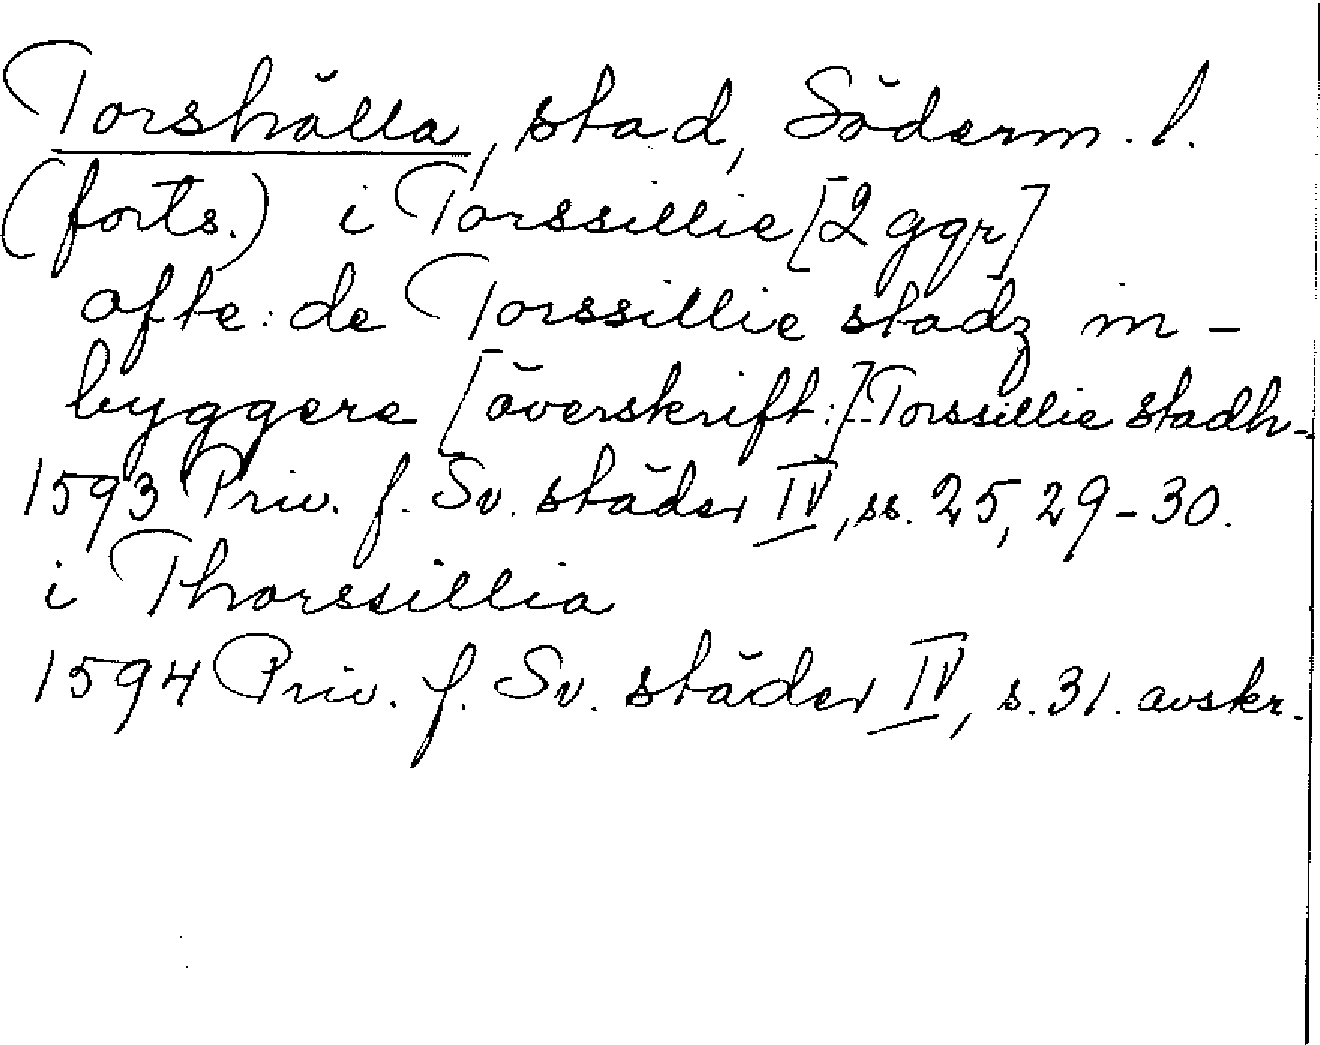 Torshälla, stad, Söderm. l.
(forts.) i Torssillie [2 ggr]
ofte: de Torssillie stadz in-
byggere [överskrift:] Torssillie stadh-
1593 Priv. f. Sv. städer IV, ss. 25, 29-30.
i Thorssillia
1594 Priv. f. Sv. städer IV, s. 31. avskr.